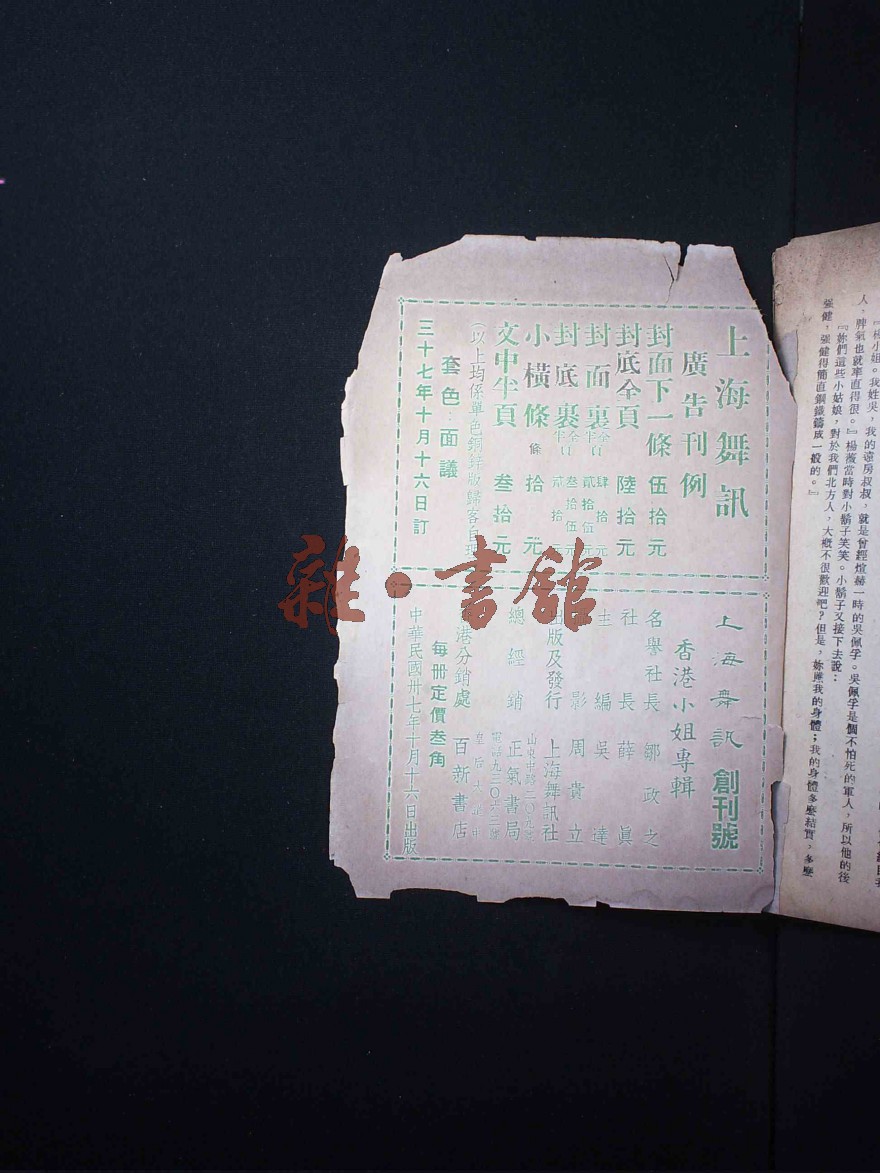 上海舞訊
廣告刊例
封面下一條 伍拾元
封底全頁 陸拾元
封面裏 全頁 肆拾元
半頁 貳拾伍元
封底裏 全頁 叁拾伍元
半頁 貳拾元
小橫條 條 拾元
文中半頁 叁拾元
(以上均係單色銅鋅版歸客自理
套色:面議
三十七年十月十六日訂
上海舞訊 創刊號
香港小姐專輯
名譽社長 鄒政之
社長 薛眞
主編 吳達
影 周貴立
出版及發行 上海舞訊社
總經銷 正氣書局
山東中路二〇九號
電話九三〇六三號
港分銷處 百新書店
皇后大道中
每册定價叁角
中華民國卅七年十月十六日出版
雜·書館
『楊小姐。我姓吳,我的遠房叔叔,就是曾經煊赫一時的吳佩孚。吳佩孚是個不怕死的軍人,所以他的後
人,脾氣也就率直得很。』楊薇當時對小鬍子笑笑。小鬍子又接下去說:
『妳們這些小姑娘,對於我們北方人,大概不很歡迎吧?但是,妳瞧我的身體;我的身體多麼結實,多麼
强健,强健得簡直鋼鐵鑄成一般的。』